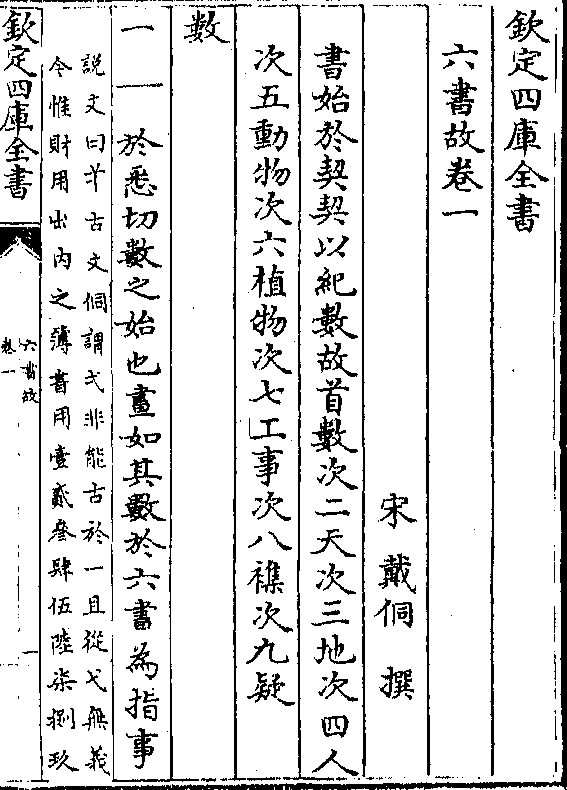 欽定四庫全書
六書故卷一
宋 戴侗 撰
書始於契契以紀數故首數次二天次三地次四人
次五動物次六植物次七工事次八襍次九疑
數
一 一 於悉切數之始也畫如其數於六書為指事
説文曰弌古文侗謂弌非能古於一且從弋無義
令惟財用出内之簿書用壹貳叄肆伍陸柒捌玖
欽定四庫全書
六書故
卷一
一